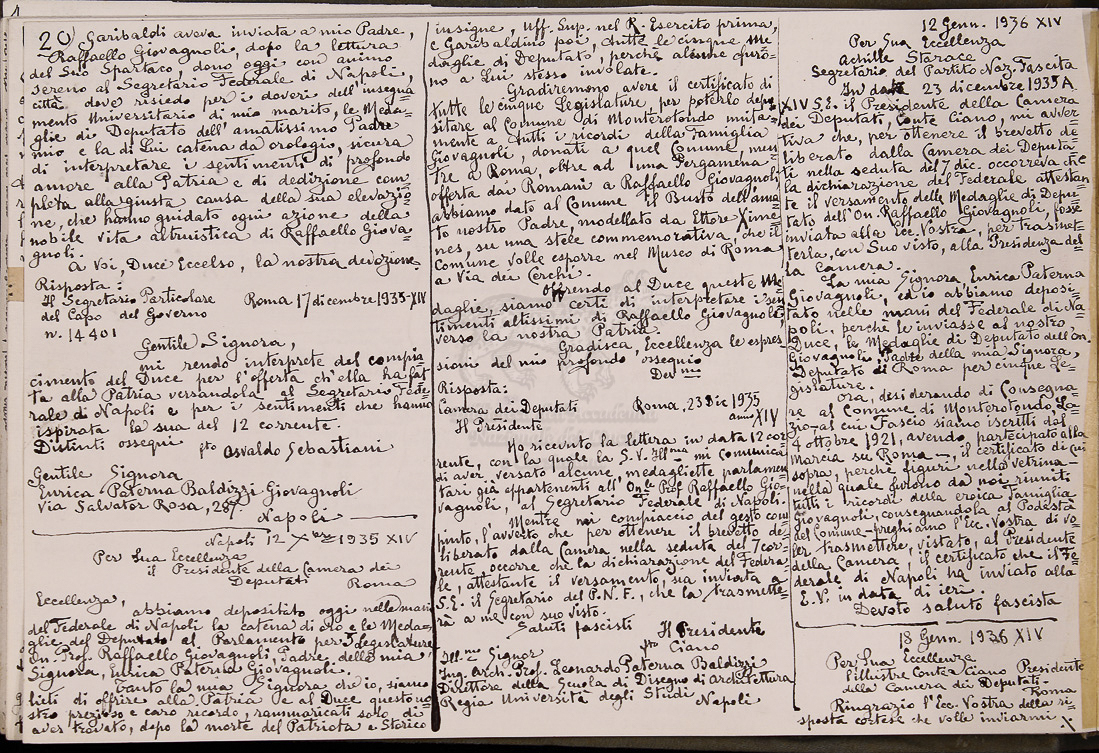 20) Garibaldi aveva inviata a mio Padre,
Raffaello Giovagnoli, dopo la lettura
del Suo Spartaco dono oggi con animo
sereno al Segretario Federale di Napoli,
città dove risiedo per i doveri dell'insegna=
mento Universitario di mio marito, le Meda=
glie di Deputato dell'amatissimo Padre
mio e la di Lui catena da orologio, sicura
di interpretare i sentimenti di profondo
amore alla Patria e di dedizione com=
pleta alla giusta causa della sua elevazio=
ne, che hanno guidato ogni azione della
nobile vita altruistica di Raffaello Giova=
gnoli.
A Voi, Duce Eccelso, la nostra devozione.
Risposta:
Il Segretario Particolare Roma 17 dicembre 1935-XIV
del Capo del Governo
n. 14401
Gentile Signora,
mi rendo interprete del compia=
cimento del Duce per l'offerta ch'ella ha fat=
ta alla Patria versandola al Segretario Fede=
rale di Napoli e per i sentimenti che hanno
ispirata la sua del 12 corrente.
Distinti ossequi fto Osvaldo Sebastiani
Gentile Signora
Enrica Paterna Baldizzi Giovagnoli
Via Salvator Rosa, 287
Napoli
Napoli 12 Xbre 1935 XIV
Per Sua Eccellenza
il Presidente della Camera dei
Deputati Roma
Eccellenza,
abbiamo depositato oggi nelle mani
del Federale di Napoli la catena di oro e le Meda=
glie del Deputato al Parlamento per 5 legislature
On. Prof. Raffaello Giovagnoli, Padre della mia
Signora, Enrica Paterna Giovagnoli.
Tanto la mia Signora che io, siamo
lieti di offrire alla Patria e al Duce questo no=
stro prezioso e caro ricordo, rammaricati solo di
aver trovato, dopo la morte del Patriota e Storico
insigne, Uff. Sup. nel R. Esercito prima,
e Garibaldino poi, tutte le cinque Me=
daglie di Deputato, perchè alcune furo=
no a Lui stesso involate.
Gradiremmo avere il certificato di
tutte le cinque Legislature, per poterlo depo=
sitare al Comune di Monterotondo unita=
mente a tutti i ricordi della Famiglia
Giovagnoli, donati a quel Comune, men=
tre a Roma, oltre ad una Pergamena
offerta dai Romani a Raffaello Giovagnoli,
abbiamo dato al Comune il Busto dell'ama=
to nostro Padre, modellato da Ettore Xime=
nes su una stele commemorativa, che il
Comune volle esporre nel Museo di Roma
a Via dei Cerchi.
Offrendo al Duce queste Me=
daglie, siamo certi di interpretare i sen=
timenti altissimi di Raffaello Giovagnoli,
verso la nostra Patria.
Gradisca, Eccellenza le espres=
sioni del mio profondo ossequio
Dev.mo
Risposta:
Camera dei Deputati Roma, 23 Dic 1935
Il Presidente anno XIV
Ho ricevuto la lettera in data 12 cor=
rente, con la quale la S.V. Ill.ma mi comunica
di aver versato alcune medagliette parlamen=
tari già appartenenti all'On.le Prof. Raffaello Gio=
vagnoli, al Segretario Federale di Napoli.
Mentre mi compiaccio del gesto com=
piuto, l'avverto che per ottenere il brevetto de=
liberato dalla Camera nella seduta del 7 cor=
rente, occorre che la dichiarazione del Federa=
le, attestante il versamento, sia inviata a
S.E. il Segretario del P.N.F., che la trasmette=
rà a me con suo visto.
Saluti fascisti
Il Presidente
fto Ciano
Ill.mo Signor
Ing. Arch. Prof. Leonardo Paterna Baldizzi
Direttore della Scuola di Disegno di architettura
Regia Università degli Studi Napoli
12 Genn. 1936 XIV
Per Sua Eccellenza
Achille Starace
Segretario del Partito Naz. Fascista
In data 23 dicembre 1935 A
XIV S.E. il Presidente della Camera
dei Deputati, Conte Ciano, mi avver=
tiva che, per ottenere il brevetto de=
liberato dalla Camera dei Deputa=
ti nella seduta del 7 dic. occorreva che
la dichiarazione del Federale attestan=
te il versamento delle Medaglie di Depu=
tato dell'On. Raffaello Giovagnoli, fosse
inviata alla Ecc. Vostra, per trasmet=
terla, con Suo visto, alla Presidenza del=
la Camera.
La mia Signora, Enrica Paterna
Giovagnoli, ed io abbiamo deposi=
tato nelle mani del Federale di Na=
poli, perchè le inviasse al nostro
Duce, le Medaglie di Deputato dell'On.
Giovagnoli Padre della mia Signora,
Deputato di Roma per cinque Le=
gislature.
Ora, desiderando di Consegna
re al Comune di Monterotondo, La=
zio - al cui Fascio siamo iscritti dal
4 ottobre 1921, avendo partecipato alla
Marcia su Roma -, il certificato di cui
sopra, perchè figuri nella vetrina
nella quale furono da noi riuniti
tutti i ricordi della eroica Famiglia
Giovagnoli, consegnandola al Podestà
del Comune - preghiamo l'Ecc. Vostra di vo=
ler trasmettere, vistato, al Presidente
della Camera, il certificato che il Fe=
derale di Napoli ha inviato alla
E.V. in data di ieri.
Devoto saluto fascista
18 Genn. 1936 XIV
Per Sua Eccellenza
l'illustre Conte Ciano Presidente
della Camera dei Deputati -
Roma
Ringrazio l'Ecc. Vostra della ri=
sposta cortese che volle inviarmi X